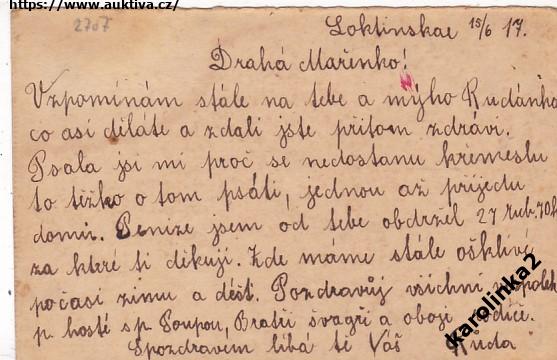 https://www.auktiva.cz/
2707
Loktinskae 15/6 17.
Drahá Mařenko!
Vzpomínám stále na tebe a mýho Rudánka
co asi děláte a zdali jste přitom zdrávi.
Psala jsi mi proč se nedostanu křemeslu
to těžko o tom psáti, jednou až přijedu
domů. Peníze jsem od tebe obdržel 27 rub. 70 k
za ktré ti děkuji. Zde máme stále ošklivé
počasí zimu a déšt. Pozdravůj všichni
p. hosté sp. Poupou, Bratří švagři a oboji rodiče.
Spozdravem líbá tě Váš Ruda
karolinka2